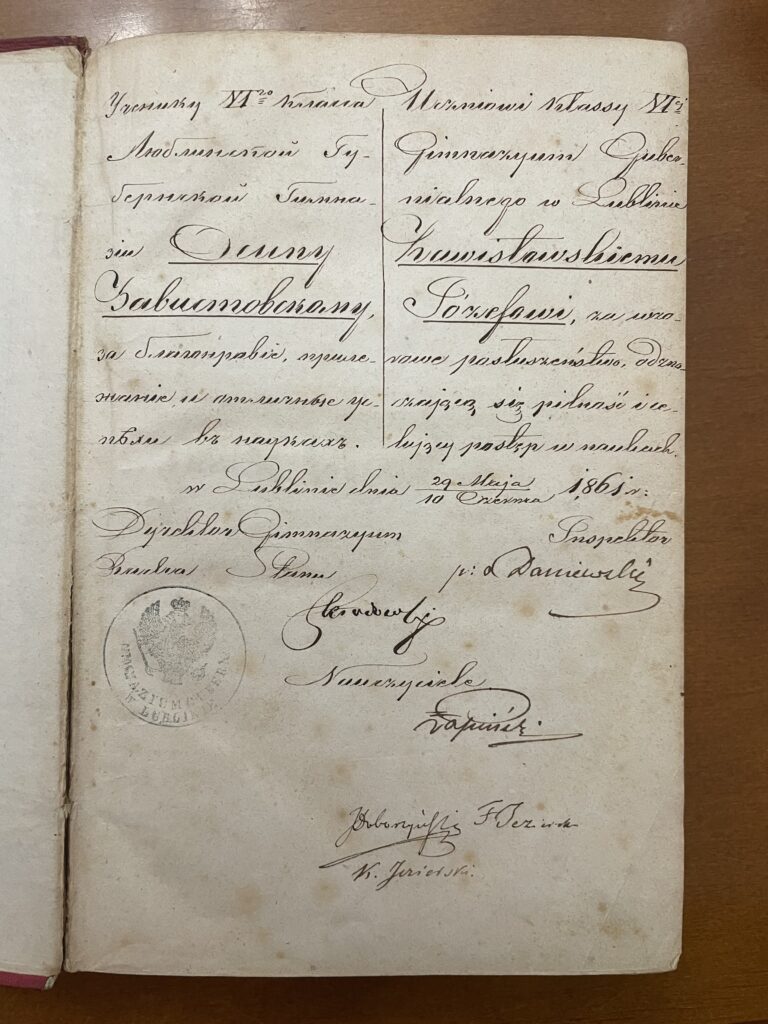 Ученику VIго класса
Люблинской Гу-
бернской Гимна-
зіи Осипу
Завистовскому,
за благонравіе, приле-
жаніе и отличные ус-
пѣхи въ наукахъ.
Uczniowi klassy VIéj
Gimnazyum Guber-
nialnego w Lublinie
Zawistowskiemu
Józefowi, za wzo-
rowe posłuszeństwo, odzna-
czającą się pilność i ce-
lujący postęp w naukach.
w Lublinie dnia 29 Maja / 10 Czerwca 1861 r:
Dyrektor Gimnazyum
Radca Stanu
Inspektor
p: o Daniewski
Nauczyciele
Łapiński
F Jezierski
K. Jezierski.
GIMNAZIUM GUBERN.
W LUBLINIE